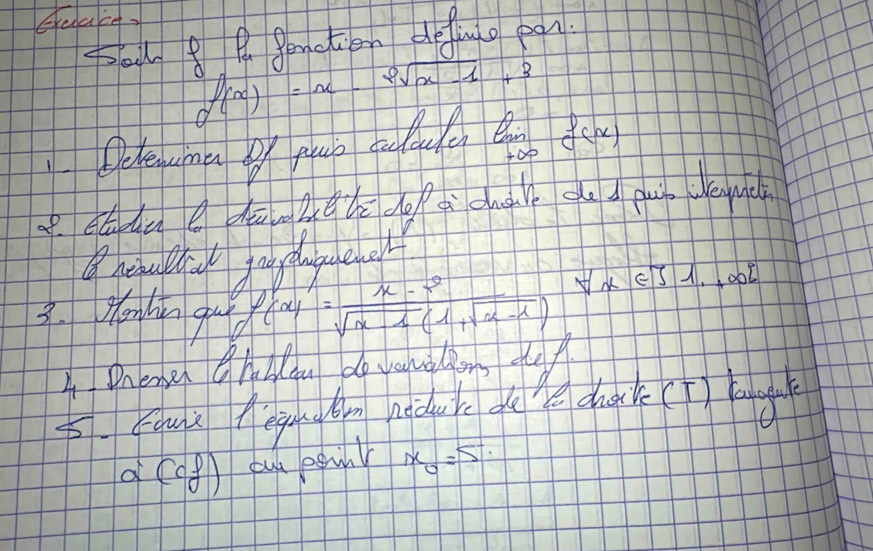 Exercice
Soit f la fonction définie par:
f(x) = x - 2√(x - 1) + 3
1. Determiner Df puis calculer lim f(x)
+∞
2. Etudier la dérivabilité de f à droite de 1 puis interpréter
le résultat graphiquement
3. Montrer que f'(x) = (x - 2)/(√(x - 1)(1 + √(x - 1))) ∀x ∈ ]1, +∞[
4 - Dresser le tableau de variation de f.
5. Ecrire l'équation réduite de la droite (T) tangente
à (Cf) au point x₀ = 5.